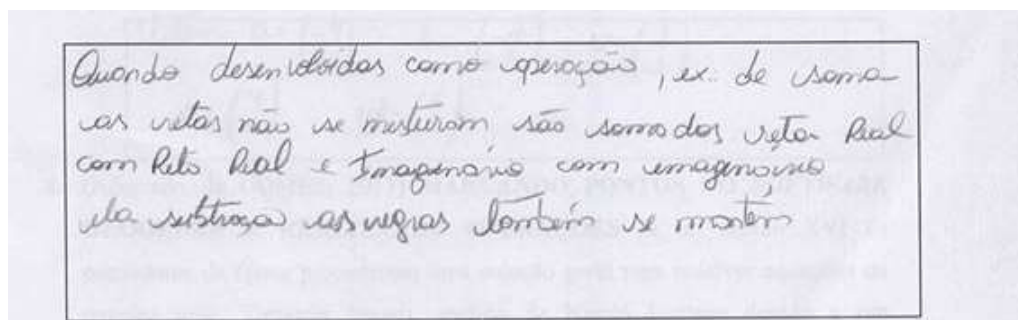 Quando desenvolvidas como operação, ex: de soma
as retas não se misturam, são somadas reta Real
com Reta Real e Imaginário com imaginário
na subtração as regras também se mantêm